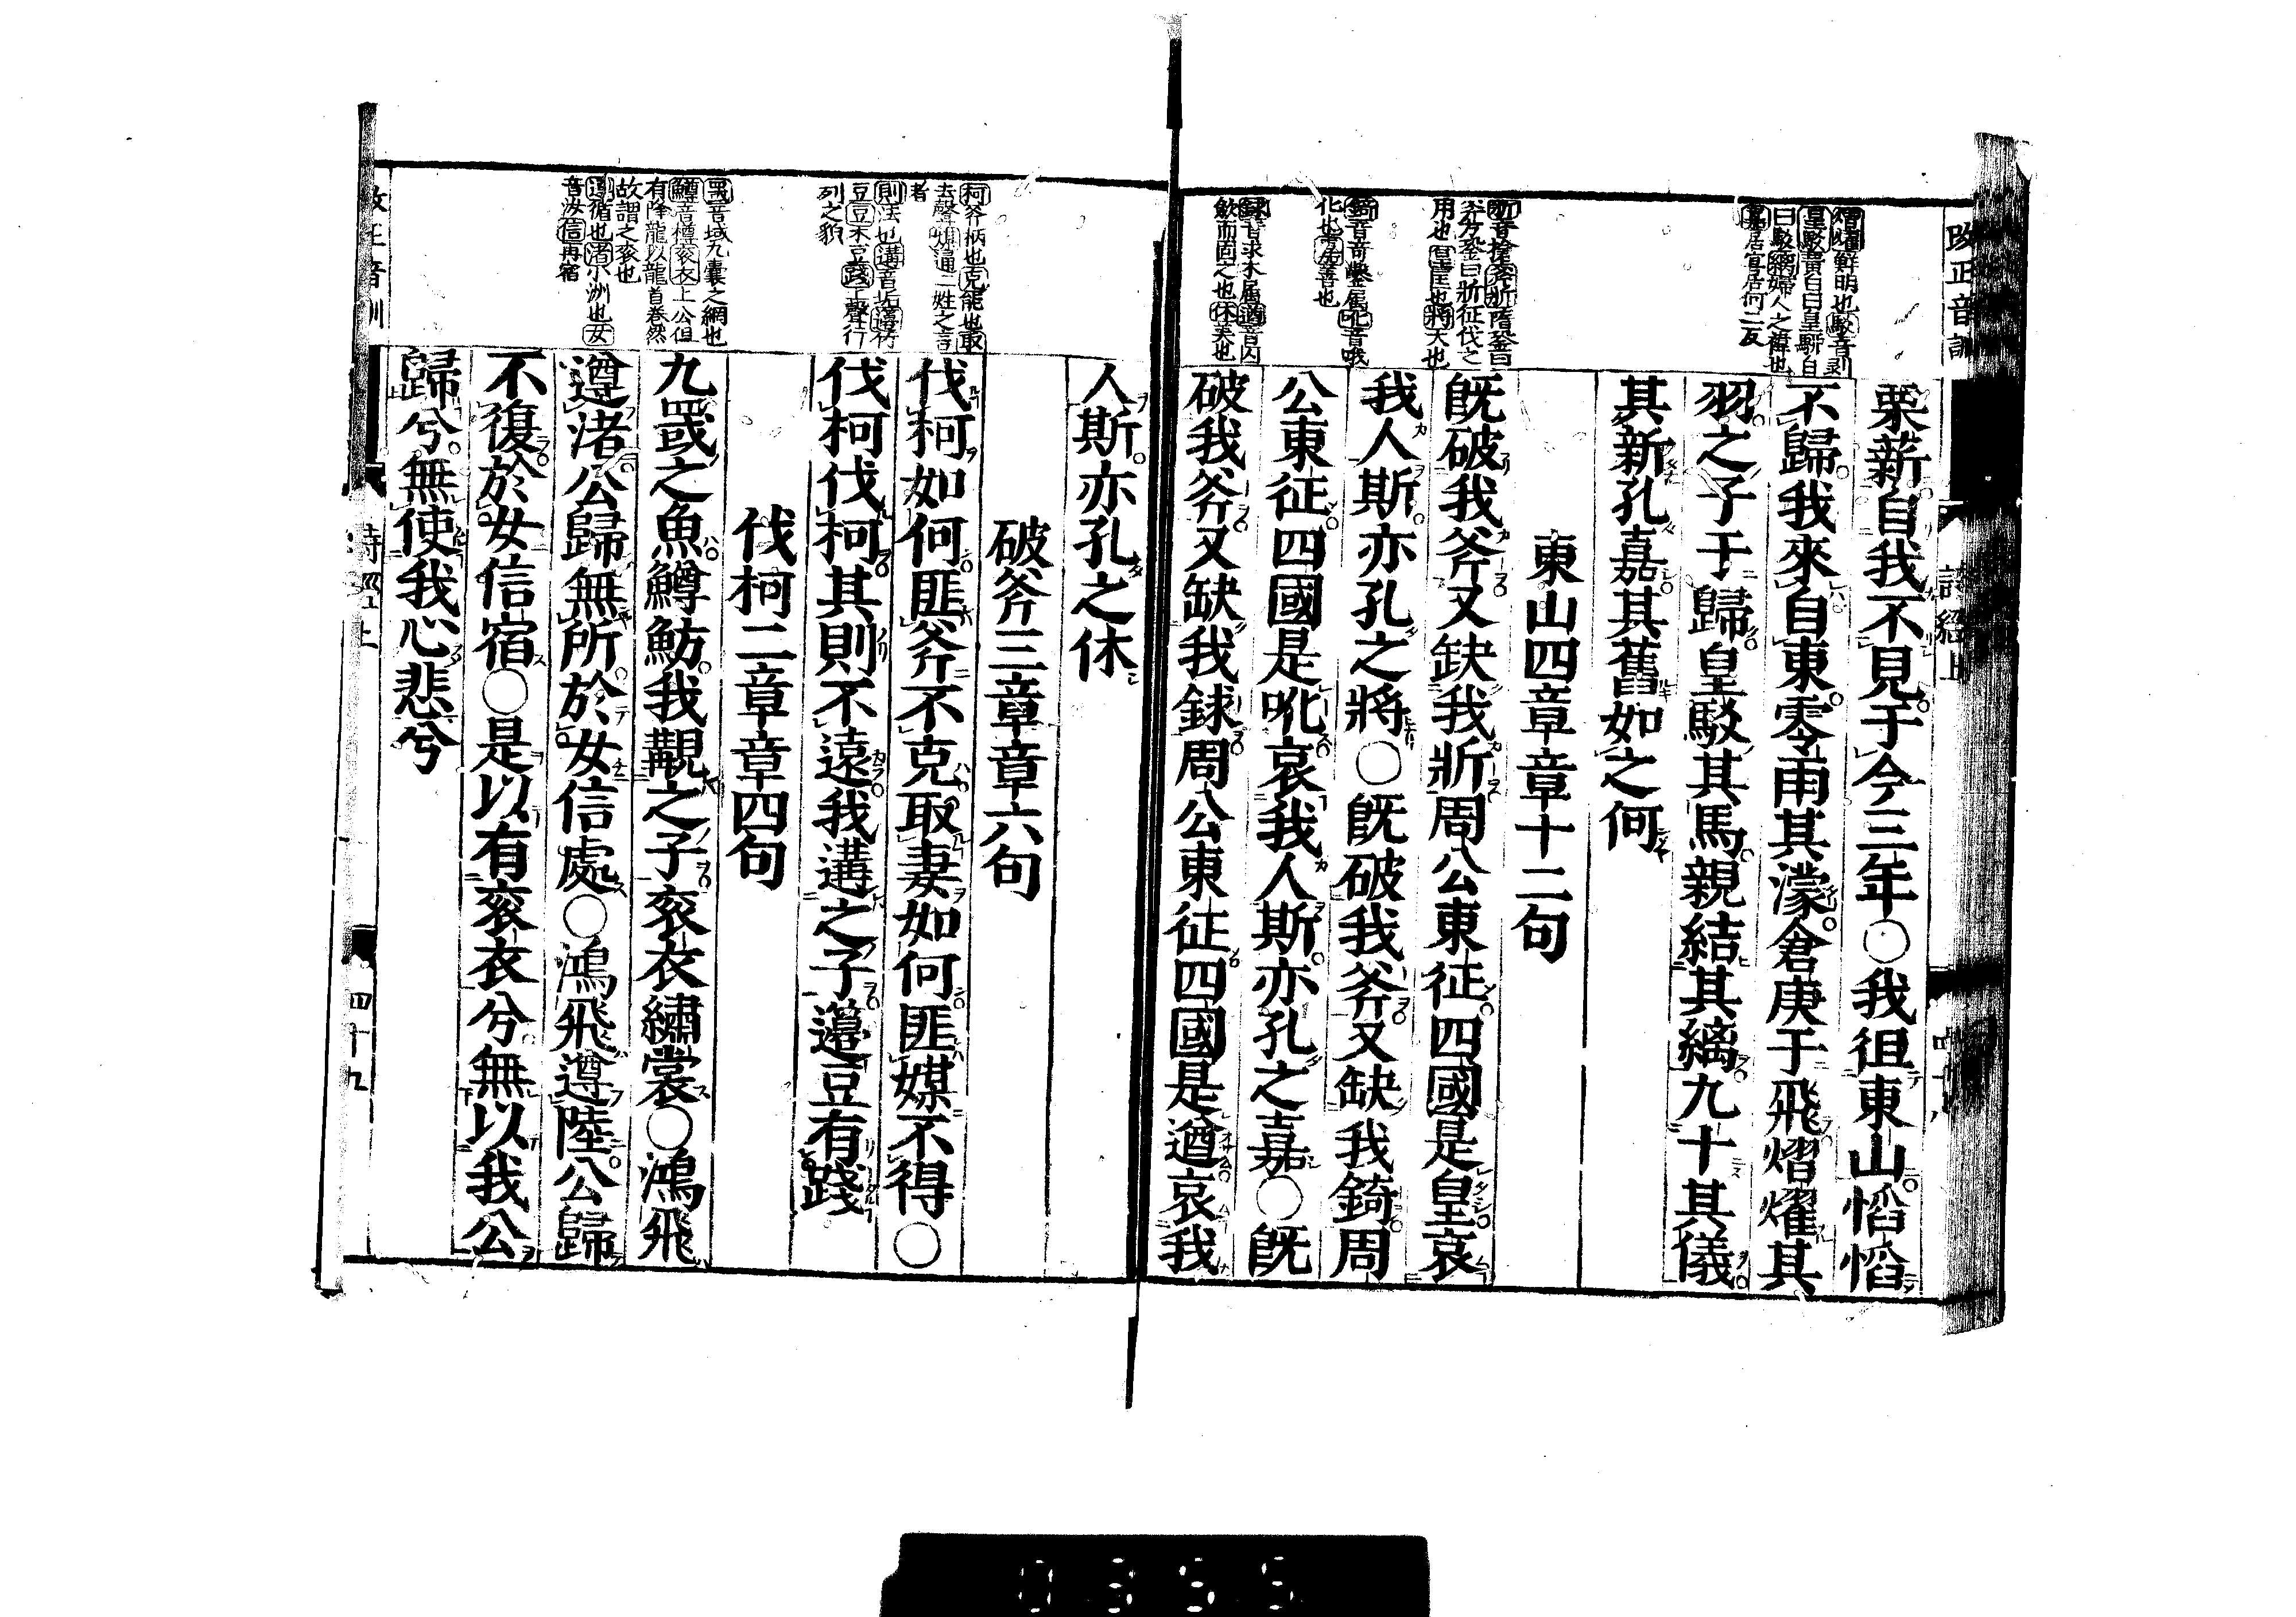 改正音訓
詩經上
熠燿鮮明也駁音剥
皇駁黄白曰皇騂白
曰駁縭婦人之褘也
嘉居宜居何二反
栗薪自我不見于今三年○我徂東山慆慆
不歸我來自東零雨其濛倉庚于飛熠燿其
羽之子于歸皇駁其馬親結其縭九十其儀
其新孔嘉其舊如之何
東山四章章十二句
斨音搶斧斨隋銎曰
斧方銎曰斨征伐之
用也皇匡也將大也
錡音奇鑿屬吪音哦
化也嘉善也
銶音求木屬遒音囚
斂而固之也休美也
既破我斧又缺我斨周公東征四國是皇哀
我人斯亦孔之將○既破我斧又缺我錡周
公東征四國是吪哀我人斯亦孔之嘉○既
破我斧又缺我銶周公東征四國是遒哀我
柯斧柄也克能也取
去聲媒通二姓之言
者
則法也遘音姤籩竹
豆豆木豆踐上聲行
列之貌
罭音域九囊之網也
鱒音樽袞衣上公但
有降龍以龍首卷然
故謂之袞也
遵循也渚小洲也女
音汝信再宿
人斯亦孔之休
破斧三章章六句
伐柯如何匪斧不克取妻如何匪媒不得○
伐柯伐柯其則不遠我遘之子籩豆有踐
伐柯二章章四句
九罭之魚鱒魴我覯之子袞衣繡裳○鴻飛
遵渚公歸無所於女信處○鴻飛遵陸公歸
不復於女信宿○是以有袞衣兮無以我公
歸兮無使我心悲兮
改正音訓
詩經上
四十九
0355